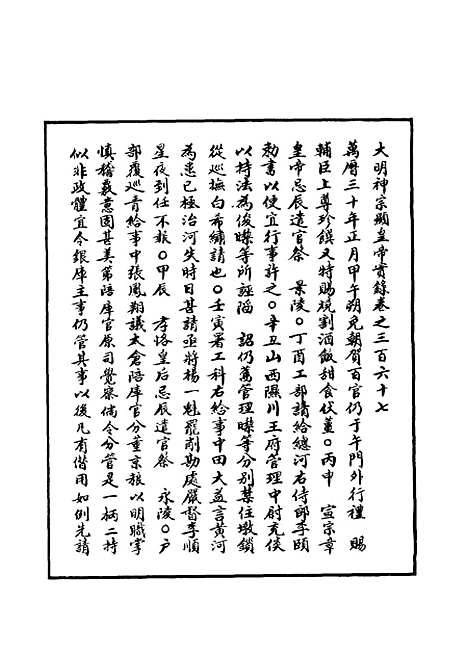 大明神宗顯皇帝實錄卷之三百六十七
萬曆三十年正月甲午朔免朝賀百官仍于午門外行禮　賜
輔臣上尊珍饌又特賜燒割酒飯甜食伏薑○丙申　宣宗章
皇帝忌辰遣官祭　景陵○丁酉工部請給總河右侍郎李頤
勅書以便宜行事許之○辛丑山西隰川王府管理中尉充倓
以持法為俊㰒等所誣陷　詔仍舊管理㰒等分別禁住墩鎖
從巡撫白希繡請也○壬寅署工科右給事中田大益言黃河
為患已極治河失時日甚請亟將楊一魁罷削勘處嚴督李順
星夜到任不報○甲辰　孝恪皇后忌辰遣官祭　永陵○戶
部覆巡青給事中張鳳翔議太倉陪庫官分董京粮以明職掌
慎稽覈意固甚美第陪庫官原司覺察倘令分管是一柄二持
似非政體宜令銀庫主事仍管其事以後凡有借用如例先請